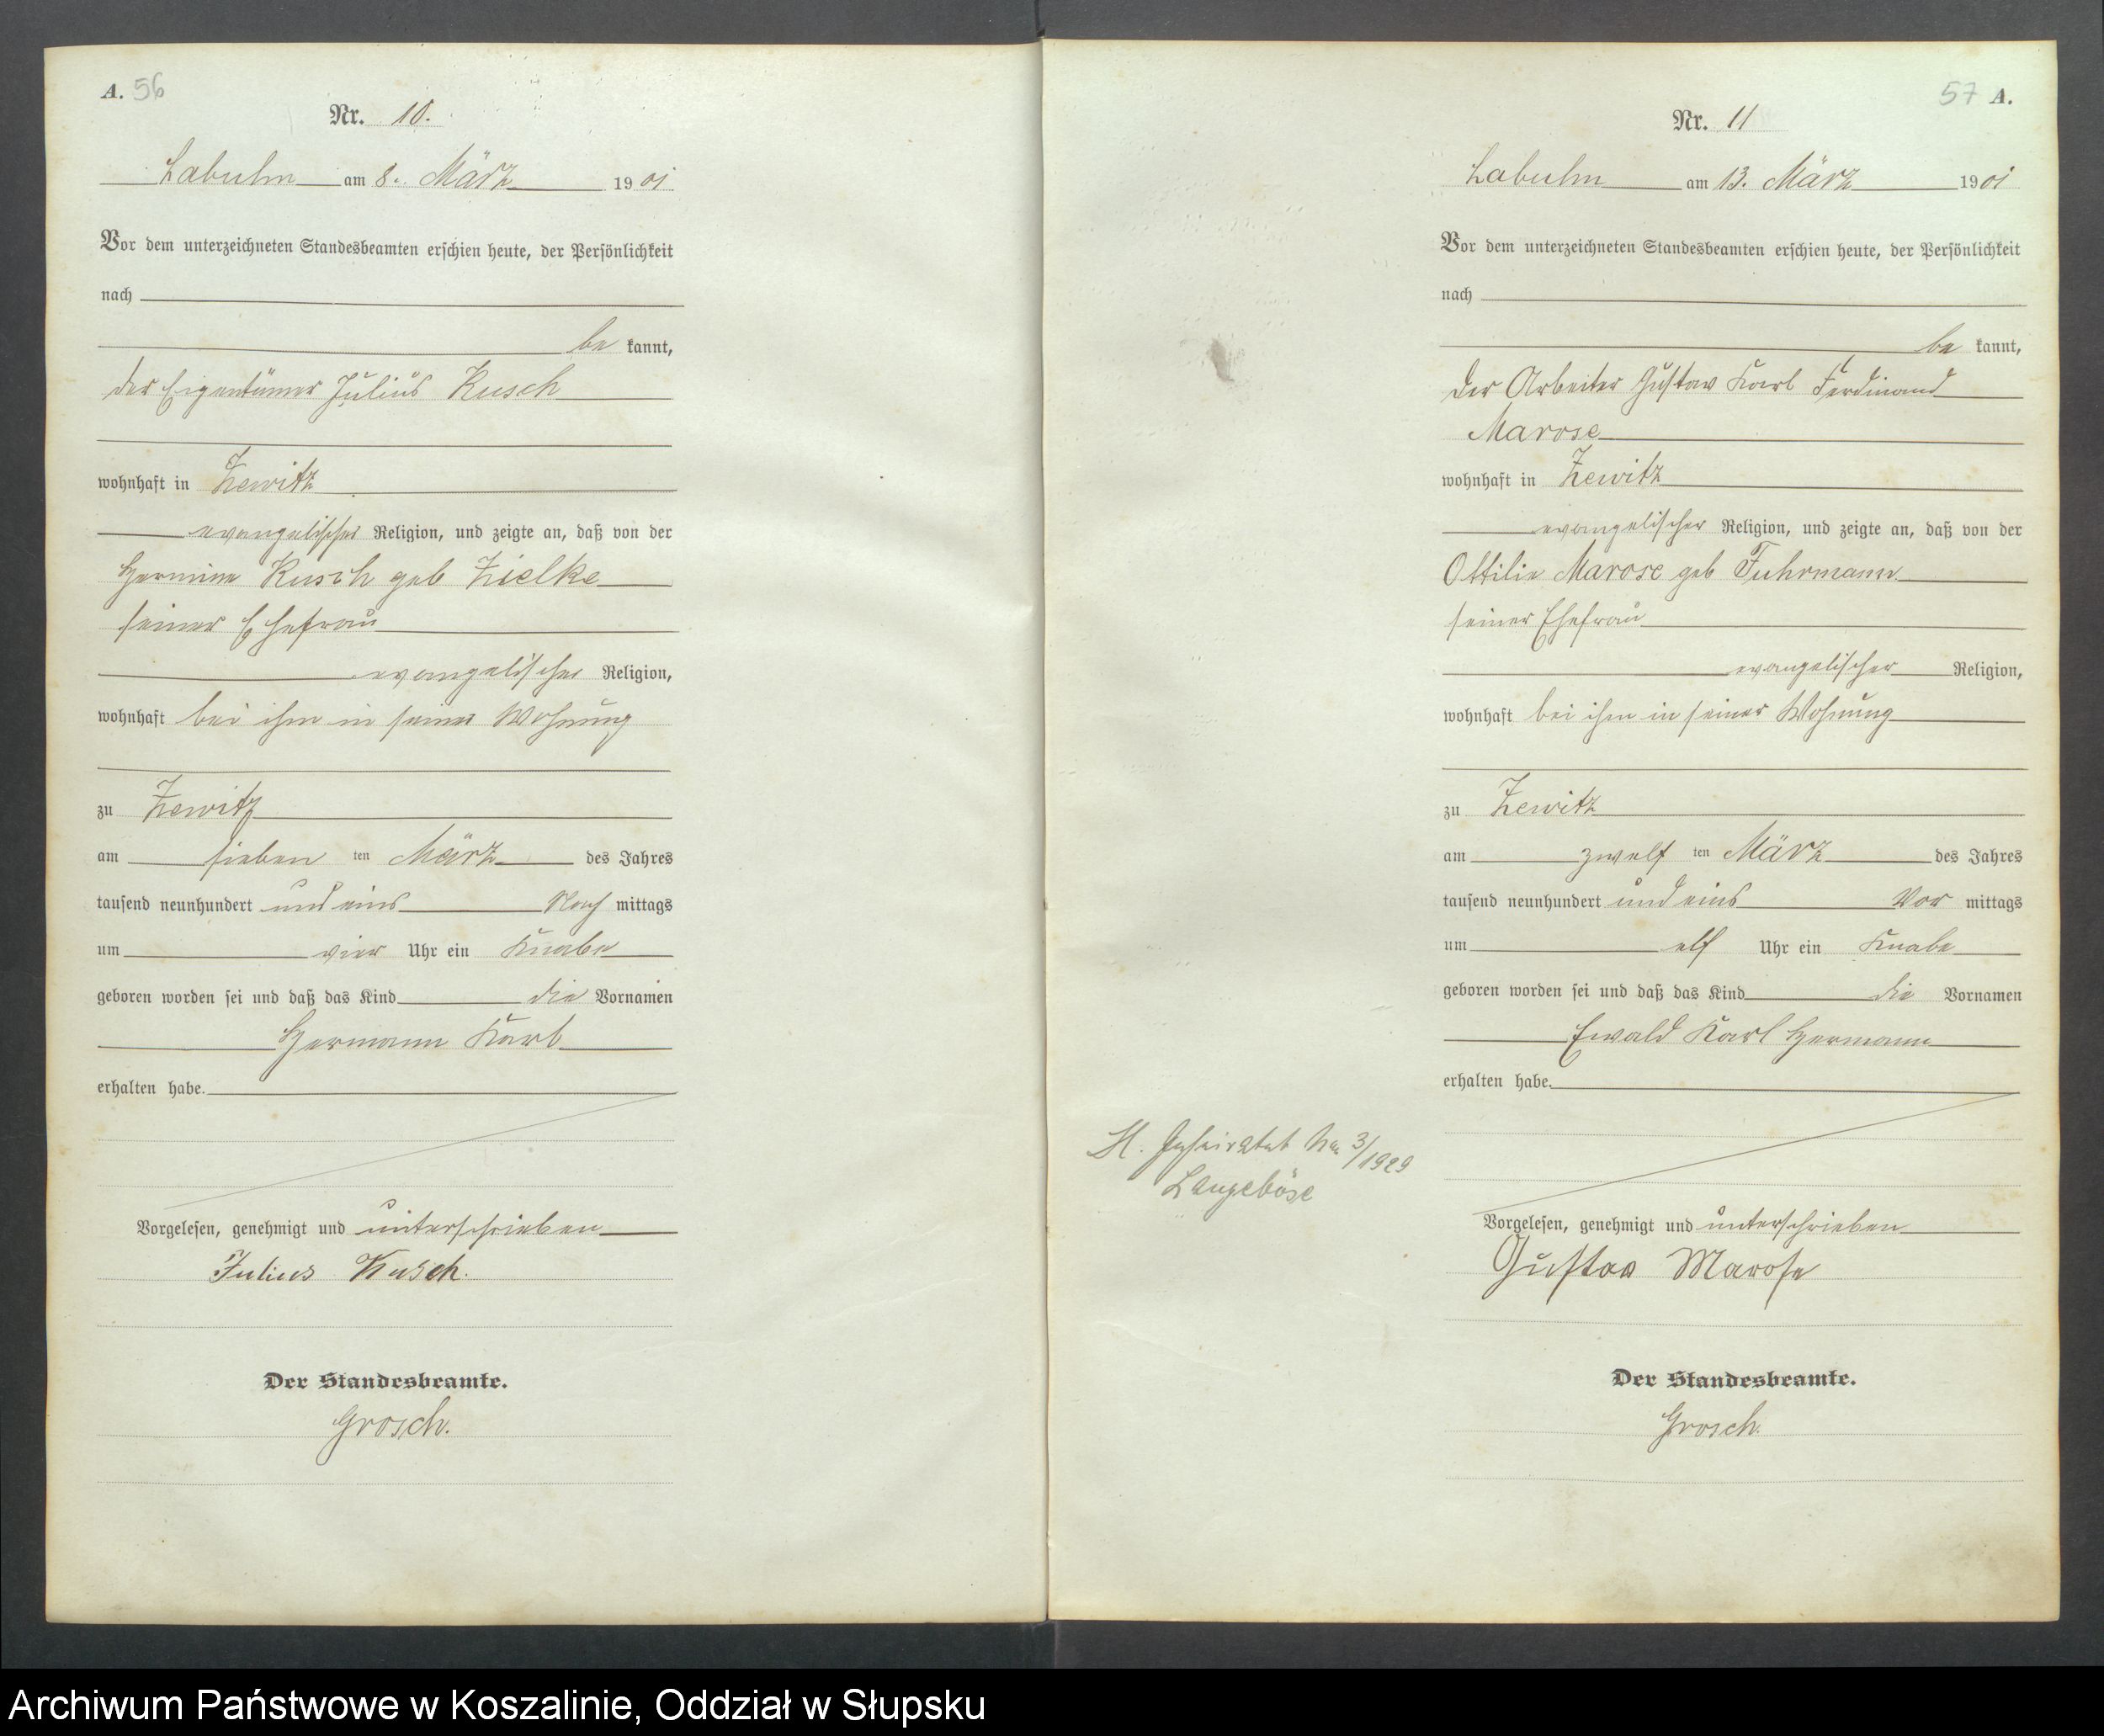 A. 56
Nr. 10.
Labuhn am 8. März 1901
Vor dem unterzeichneten Standesbeamten erschien heute, der Persönlichkeit
nach
be kannt,
der Eigentümer Julius Kusch
wohnhaft in Zewitz
evangelischer Religion, und zeigte an, daß von der
Hermine Kusch geb Zielke
seiner Ehefrau
evangelischer Religion,
wohnhaft bei ihm in seiner Wohnung
zu Zewitz
am sieben ten März des Jahres
tausend neunhundert und eins Nach mittags
um vier Uhr ein Knabe
geboren worden sei und daß das Kind die Vornamen
Hermann Karl
erhalten habe.
Vorgelesen, genehmigt und unterschrieben
Julius Kusch.
Der Standesbeamte.
Grosch.
57 A.
Nr. 11
Labuhn am 13. März 1901
Vor dem unterzeichneten Standesbeamten erschien heute, der Persönlichkeit
nach
be kannt,
der Arbeiter Gustav Karl Ferdinand
Marose
wohnhaft in Zewitz
evangelischer Religion, und zeigte an, daß von der
Ottilie Marose geb Fuhrmann
seiner Ehefrau
evangelischer Religion,
wohnhaft bei ihm in seiner Wohnung
zu Zewitz
am zwölf ten März des Jahres
tausend neunhundert und eins Vor mittags
um elf Uhr ein Knabe
geboren worden sei und daß das Kind die Vornamen
Ewald Karl Hermann
erhalten habe.
H. Geheiratet No 3/1929
Langeböse
Vorgelesen, genehmigt und unterschrieben
Gustav Marose
Der Standesbeamte.
Grosch.
Archiwum Państwowe w Koszalinie, Oddział w Słupsku